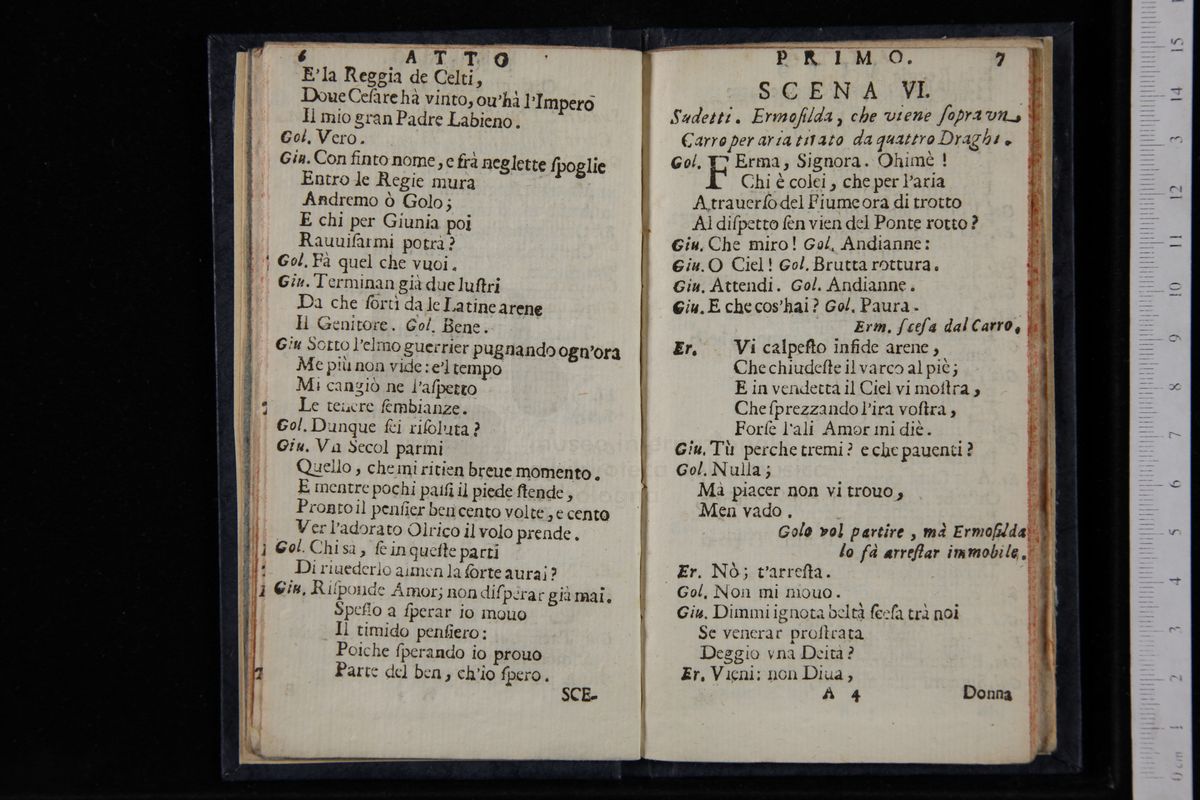 6 ATTO
E'la Reggia de Celti,
Doue Ceſare hà vinto, ou'hà l'Impero
Il mio gran Padre Labieno.
Gol. Vero.
Giu. Con finto nome, e frà neglette ſpoglie
Entro le Regie mura
Andremo ò Golo;
E chi per Giunia poi
Rauuiſarmi potrà?
Gol. Fà quel che vuoi.
Giu. Terminan già due luſtri
Da che ſortì da le Latine arene
Il Genitore. Gol. Bene.
Giu Sotto l'elmo guerrier pugnando ogn'ora
Me più non vide: e'l tempo
Mi cangiò ne l'aſpetto
Le tenere ſembianze.
Gol. Dunque ſei riſoluta?
Giu. Vn Secol parmi
Quello, che mi ritien breue momento.
E mentre pochi paſſi il piede ſtende,
Pronto il penſier ben cento volte, e cento
Ver l'adorato Olrico il volo prende.
Gol. Chi sà, ſe in queſte parti
Di riuederlo almen la ſorte aurai?
Giu. Riſponde Amor; non diſperar già mai.
Speſſo a ſperar io mouo
Il timido penſiero:
Poiche ſperando io prouo
Parte del ben, ch'io ſpero.
SCE-
PRIMO. 7
SCENA VI.
Sudetti. Ermoſilda, che viene ſopra vn
Carro per aria tirato da quattro Draghi.
Gol. FErma, Signora. Ohimè!
Chi è colei, che per l'aria
A trauerſo del Fiume ora di trotto
Al diſpetto ſen vien del Ponte rotto?
Giu. Che miro! Gol. Andianne:
Giu. O Ciel! Gol. Brutta rottura.
Giu. Attendi. Gol. Andianne.
Giu. E che cos'hai? Gol. Paura.
Erm. ſceſa dal Carro.
Er. Vi calpeſto infide arene,
Che chiudeſte il varco al piè;
E in vendetta il Ciel vi moſtra,
Che ſprezzando l'ira voſtra,
Forſe l'ali Amor mi diè.
Giu. Tù perche tremi? e che pauenti?
Gol. Nulla;
Mà piacer non vi trouo,
Men vado.
Golo vol partire, mà Ermoſilda
lo fà arreſtar immobile.
Er. Nò; t'arreſta.
Gol. Non mi mouo.
Giu. Dimmi ignota beltà ſceſa trà noi
Se venerar proſtrata
Deggio vna Deità?
Er. Vieni: non Diua,
A 4 Donna